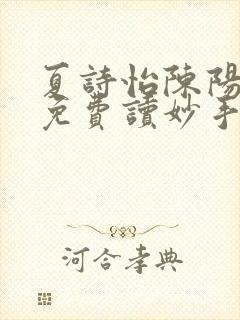 夏詩怡陳陽
免費讀妙手
河合孝典